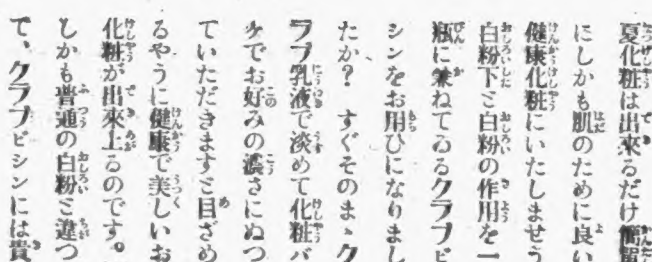 夏化粧は出來るだけ簡單
にしかも肌のために良い
健康化粧にいたしませう
白粉下と白粉の作用を一
瓶に兼ねてゐるクラブビ
シンをお用ひになりまし
たか? すぐそのまゝク
ラブ乳液で淡めて化粧バ
ケでお好みの濃さにぬつ
ていただきますと目ざめ
るやうに健康で美しいお
化粧が出來上るのです。
しかも普通の白粉と違つ
て、クラブビシンには貴